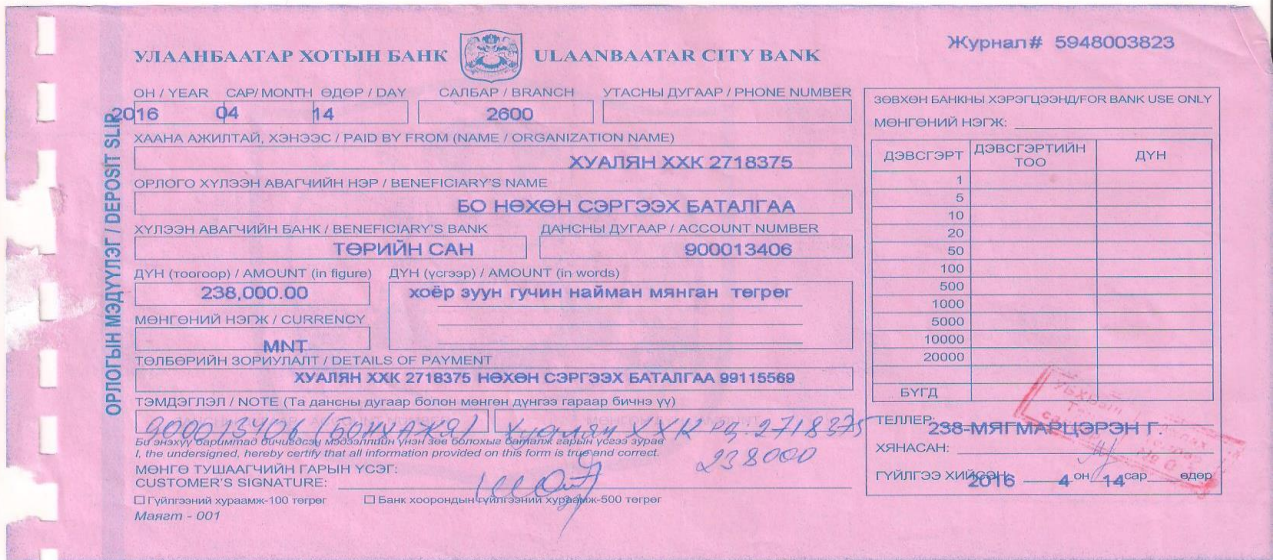 УЛААНБААТАР ХОТЫН БАНК ULAANBAATAR CITY BANK
Журнал# 5948003823
ОРЛОГЫН МЭДҮҮЛЭГ / DEPOSIT SLIP
ОН / YEAR САР/ MONTH ӨДӨР / DAY САЛБАР / BRANCH УТАСНЫ ДУГААР / PHONE NUMBER
2016 04 14 2600
ХААНА АЖИЛТАЙ, ХЭНЭЭС / PAID BY FROM (NAME / ORGANIZATION NAME)
ХУАЛЯН ХХК 2718375
ОРЛОГО ХҮЛЭЭН АВАГЧИЙН НЭР / BENEFICIARY'S NAME
БО НӨХӨН СЭРГЭЭХ БАТАЛГАА
ХҮЛЭЭН АВАГЧИЙН БАНК / BENEFICIARY'S BANK ДАНСНЫ ДУГААР / ACCOUNT NUMBER
ТӨРИЙН САН 900013406
ДҮН (тоогоор) / AMOUNT (in figure) ДҮН (үсгээр) / AMOUNT (in words)
238,000.00 хоёр зуун гучин найман мянган төгрөг
МӨНГӨНИЙ НЭГЖ / CURRENCY
MNT
ТӨЛБӨРИЙН ЗОРИУЛАЛТ / DETAILS OF PAYMENT
ХУАЛЯН ХХК 2718375 НӨХӨН СЭРГЭЭХ БАТАЛГАА 99115569
ТЭМДЭГЛЭЛ / NOTE (Та дансны дугаар болон мөнгөн дүнгээ гараар бичнэ үү)
900013406 (БОНХАЖЯ) Хуалян ХХК рд: 2718375
Би энэхүү баримтад бичигдсэн мэдээллийн үнэн зөв болохыг баталж гарын үсгээ зурав
I, the undersigned, hereby certify that all information provided on this form is true and correct.
238000
МӨНГӨ ТУШААГЧИЙН ГАРЫН ҮСЭГ:
CUSTOMER'S SIGNATURE:
Гүйлгээний хураамж-100 төгрөг Банк хоорондын гүйлгээний хураамж-500 төгрөг
Маягт - 001
ЗӨВХӨН БАНКНЫ ХЭРЭГЦЭЭНД/FOR BANK USE ONLY
МӨНГӨНИЙ НЭГЖ:
ДЭВСГЭРТ ДЭВСГЭРТИЙН ТОО ДҮН
1
5
10
20
50
100
500
1000
5000
10000
20000
БҮГД
ТЕЛЛЕР: 238-МЯГМАРЦЭРЭН Г.
ХЯНАСАН:
ГҮЙЛГЭЭ ХИЙСЭН: 2016 он 4 сар 14 өдөр